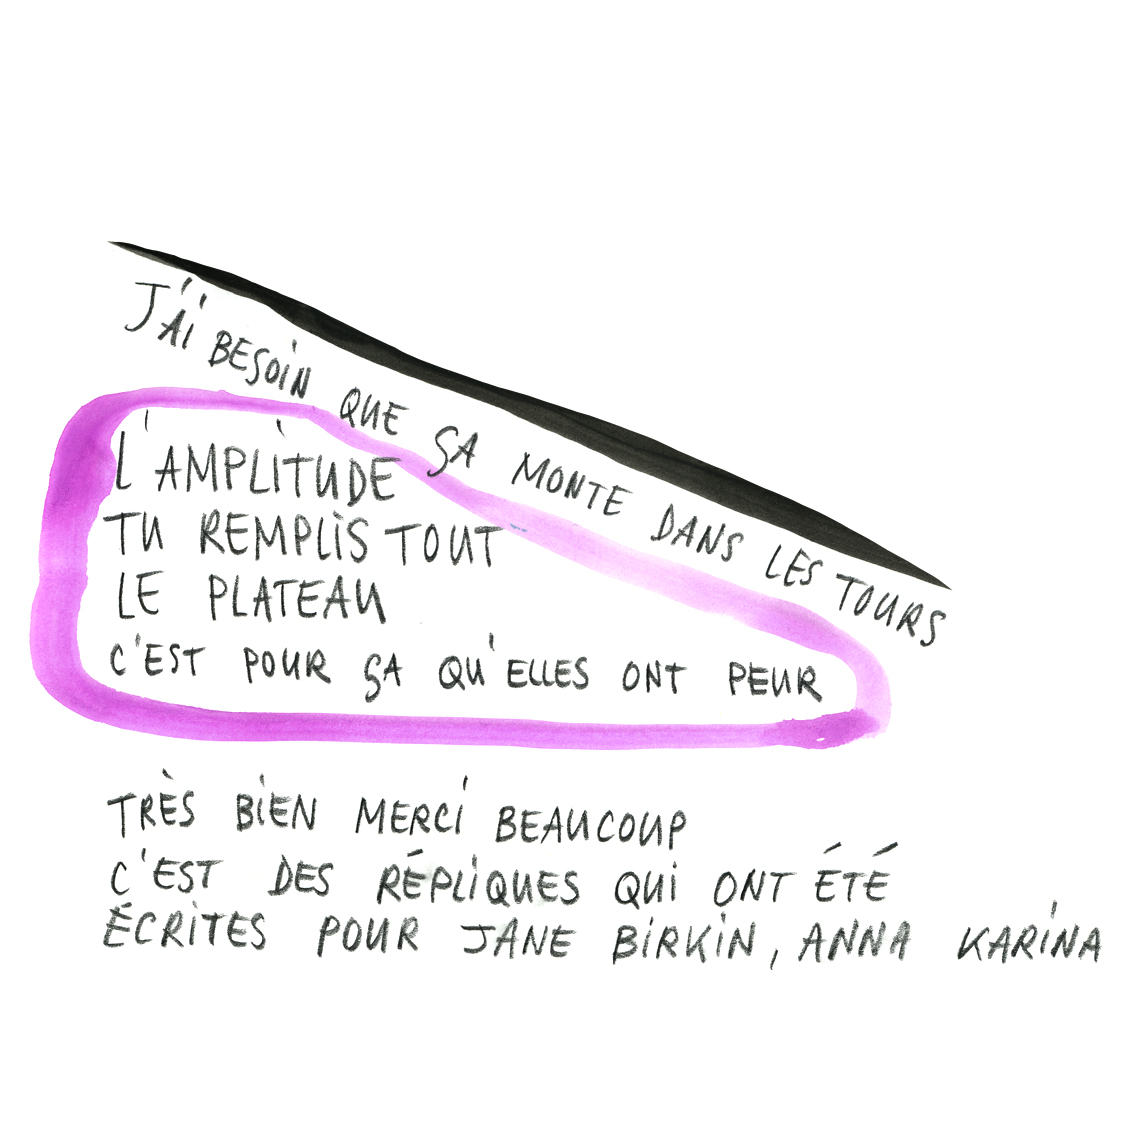 J'AI BESOIN QUE ÇA MONTE DANS LES TOURS
L'AMPLITUDE
TU REMPLIS TOUT
LE PLATEAU
C'EST POUR ÇA QU'ELLES ONT PEUR
TRÈS BIEN MERCI BEAUCOUP
C'EST DES RÉPLIQUES QUI ONT ÉTÉ
ÉCRITES POUR JANE BIRKIN, ANNA KARINA